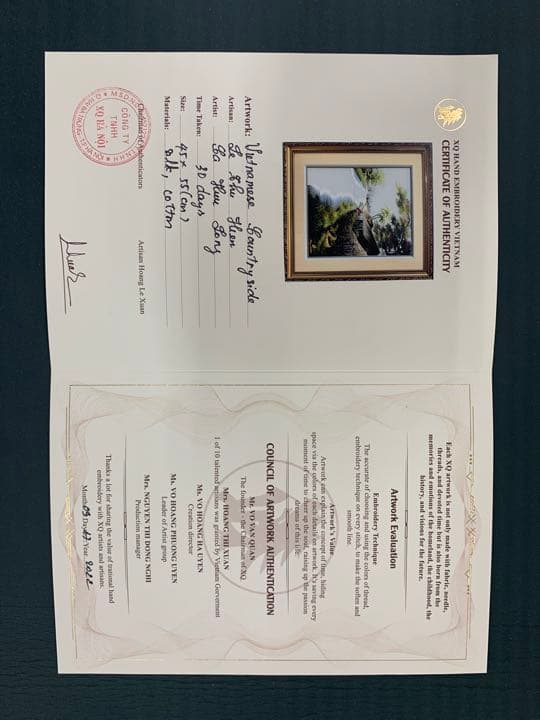 XQ HAND EMBROIDERY VIETNAM
CERTIFICATE OF AUTHENTICITY
Artwork: Vietnamese Countryside
Artisan: Le Thu Hien
Artist: Ga Huu Long
Time Taken: 30 days
Size: 45 x 55 (cm)
Materials: silk, cotton
Chairman of Authenticators
Artisan Hoang Le Xuan
CÔNG TY
TNHH
XQ HÀ NỘI
Each XQ artwork is not only made with fabric, needle,
threads, and devoted time but is also born from the
memories and emotions of the homeland, the childhood, the
history, and visions for the future.
Artwork Evaluation
Embroidery Technique
The accurate of choosing and using the colors of thread,
embroidery technique on every stitch, to make the soften and
smooth line.
Artwork's Value
Artwork can explain the concept of time, hiding
space via the colors of each details on artwork. It's saving every
moment of time to cheer up the soul, raising up the passion
dreams of the life.
COUNCIL OF ARTWORK AUTHENTICATION
Mr. VO VAN QUAN
The founder - the Chairman of XQ
Mrs. HOANG THI XUAN
1 of 10 talented artisans was granted by Vietnam Goverment
Ms. VO HOANG HA UYEN
Creation director
Ms. VO HOANG PHUONG UYEN
Leader of Artist group
Mrs. NGUYEN THI DONG NGHI
Production manager
Thanks a lot for sharing the value of traional hand
embroidery with XQ artists and artisans.
Month 09 Day Year 2022